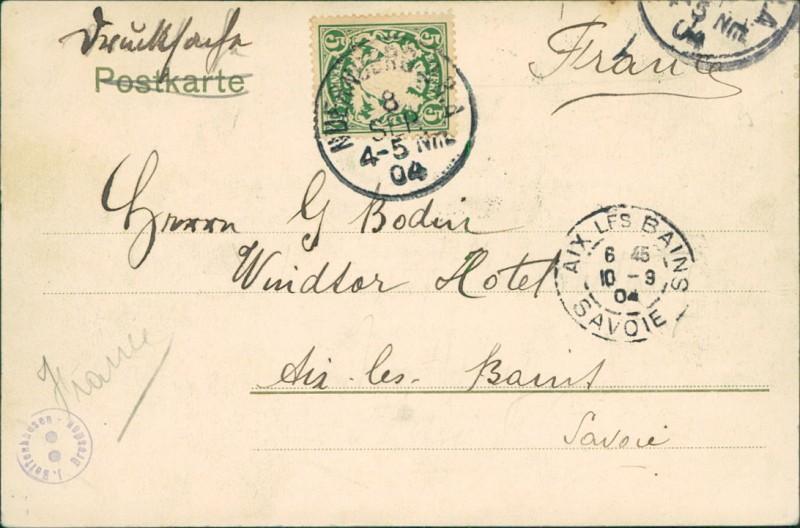 Drucksache
Postkarte
5 5
NÜRNBERG
8
SEP
4-5 Nm.
04
4-5 Nm.
04
France
Herrn G Bodin
Windsor Hotel
AIX-LES-BAINS
6 45
10 - 9
04
SAVOIE
Aix-les-Bains
Savoie
France